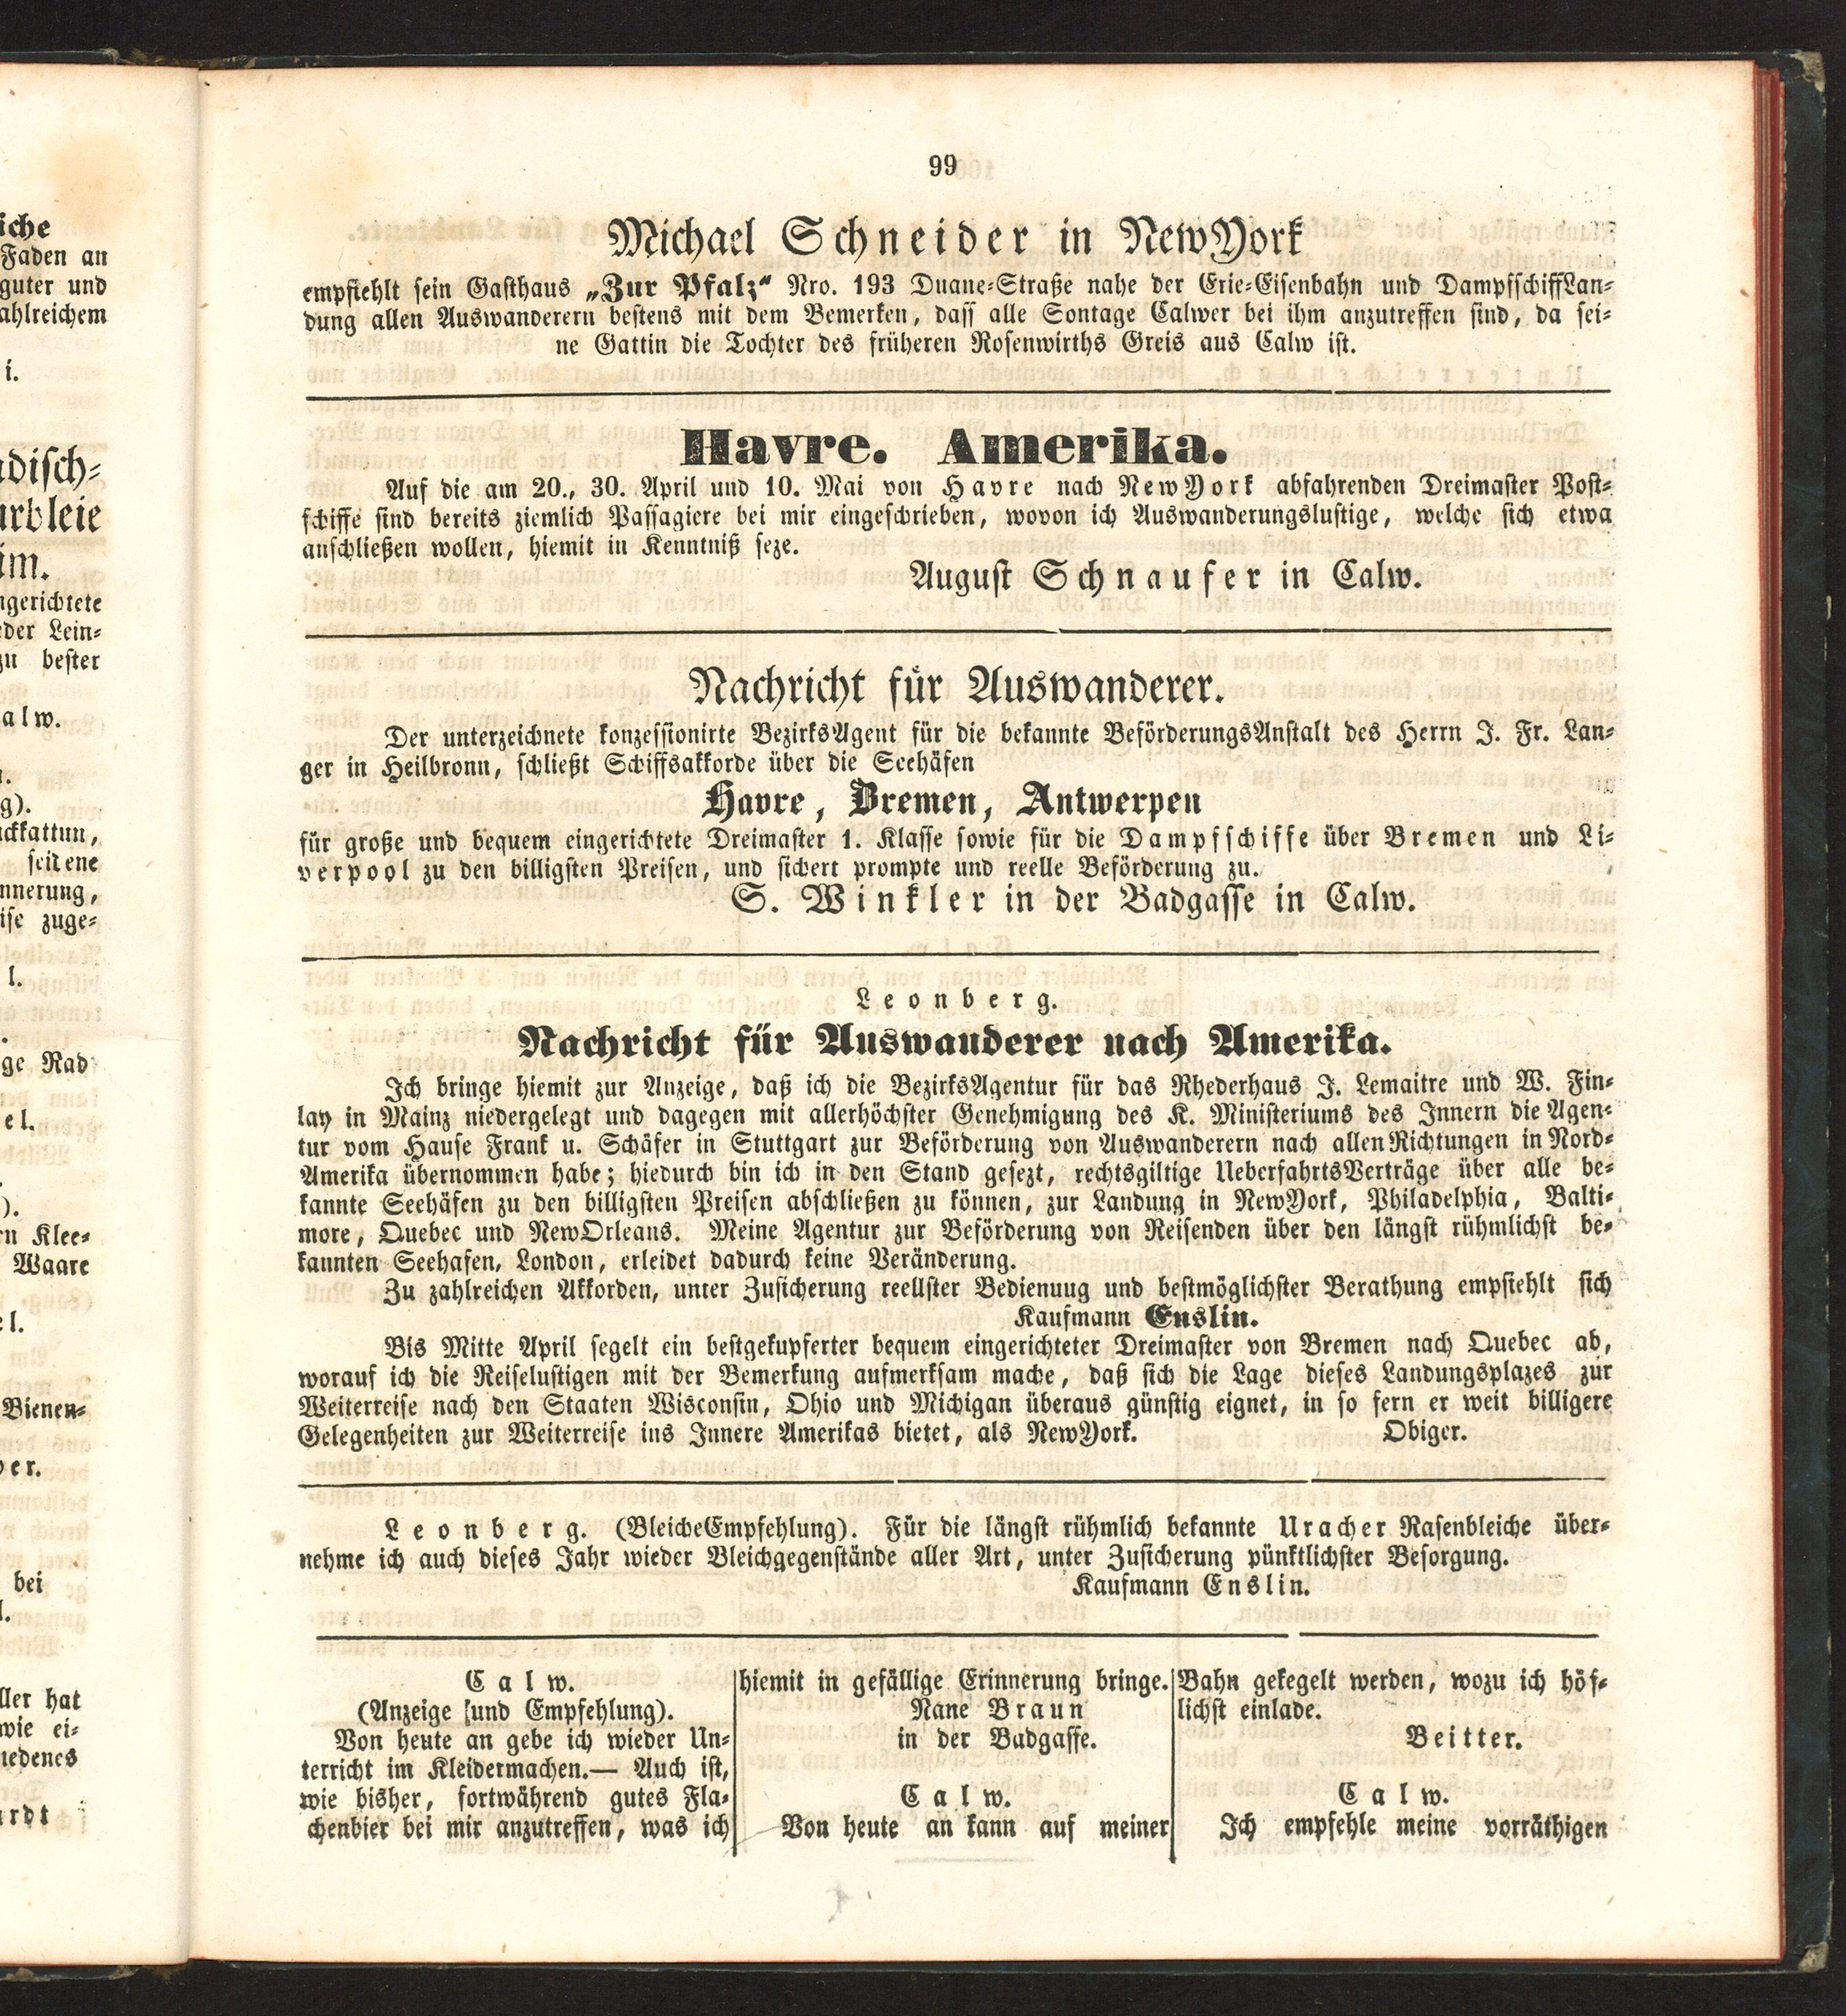 iche
Faden an
guter und
ahlreichem
i.
disch-
arbleie
im.
ngerichtete
eder Lein-
zu bester
alw.
g).
ckkattun,
seidene
nnerung,
ise zuge-
l.
ge Rad
el.
).
rn Klee-
Waare
el.
Bienen-
ver.
bei
l.
ller hat
wie ei-
iedenes
ardt
99
Michael Schneider in NewYork
empfiehlt sein Gasthaus „Zur Pfalz“ Nro. 193 Duane-Straße nahe der Erie-Eisenbahn und DampfschiffLan-
dung allen Auswanderern bestens mit dem Bemerken, dass alle Sontage Calwer bei ihm anzutreffen sind, da sei-
ne Gattin die Tochter des früheren Rosenwirths Greis aus Calw ist.
Havre. Amerika.
Auf die am 20., 30. April und 10. Mai von Havre nach NewYork abfahrenden Dreimaster Post-
schiffe sind bereits ziemlich Passagiere bei mir eingeschrieben, wovon ich Auswanderungslustige, welche sich etwa
anschließen wollen, hiemit in Kenntniß seze.
August Schnaufer in Calw.
Nachricht für Auswanderer.
Der unterzeichnete konzessionirte BezirksAgent für die bekannte BeförderungsAnstalt des Herrn J. Fr. Lan-
ger in Heilbronn, schließt Schiffsakkorde über die Seehäfen
Havre, Bremen, Antwerpen
für große und bequem eingerichtete Dreimaster 1. Klasse sowie für die Dampfschiffe über Bremen und Li-
verpool zu den billigsten Preisen, und sichert prompte und reelle Beförderung zu.
S. Winkler in der Badgasse in Calw.
Leonberg.
Nachricht für Auswanderer nach Amerika.
Ich bringe hiemit zur Anzeige, daß ich die BezirksAgentur für das Rhederhaus J. Lemaitre und W. Fin-
lay in Mainz niedergelegt und dagegen mit allerhöchster Genehmigung des K. Ministeriums des Innern die Agen-
tur vom Hause Frank u. Schäfer in Stuttgart zur Beförderung von Auswanderern nach allen Richtungen in Nord-
Amerika übernommen habe; hiedurch bin ich in den Stand gesezt, rechtsgiltige UeberfahrtsVerträge über alle be-
kannte Seehäfen zu den billigsten Preisen abschließen zu können, zur Landung in NewYork, Philadelphia, Balti-
more, Quebec und NewOrleans. Meine Agentur zur Beförderung von Reisenden über den längst rühmlichst be-
kannten Seehafen, London, erleidet dadurch keine Veränderung.
Zu zahlreichen Akkorden, unter Zusicherung reellster Bedienuug und bestmöglichster Berathung empfiehlt sich
Kaufmann Enslin.
Bis Mitte April segelt ein bestgekupferter bequem eingerichteter Dreimaster von Bremen nach Quebec ab,
worauf ich die Reiselustigen mit der Bemerkung aufmerksam mache, daß sich die Lage dieses Landungsplazes zur
Weiterreise nach den Staaten Wisconsin, Ohio und Michigan überaus günstig eignet, in so fern er weit billigere
Gelegenheiten zur Weiterreise ins Innere Amerikas bietet, als NewYork. Obiger.
Leonberg. (BleicheEmpfehlung). Für die längst rühmlich bekannte Uracher Rasenbleiche über-
nehme ich auch dieses Jahr wieder Bleichgegenstände aller Art, unter Zusicherung pünktlichster Besorgung.
Kaufmann Enslin.
Calw.
(Anzeige [und Empfehlung).
Von heute an gebe ich wieder Un-
terricht im Kleidermachen.— Auch ist,
wie bisher, fortwährend gutes Fla-
chenbier bei mir anzutreffen, was ich
hiemit in gefällige Erinnerung bringe.
Nane Braun
in der Badgasse.
Calw.
Von heute an kann auf meiner
Bahn gekegelt werden, wozu ich höf-
lichst einlade.
Beitter.
Calw.
Ich empfehle meine vorräthigen